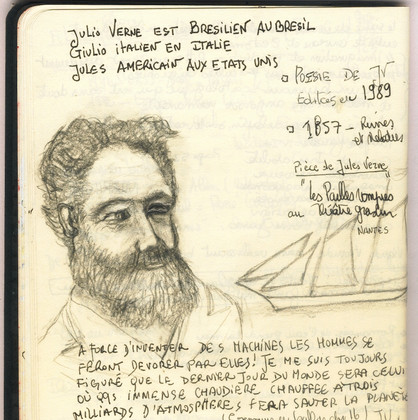 Julio VERNE EST BRESILIEN AU BRESIL
Giulio iTALIEN EN ITALIE
JULES AMERICAIN AUX ETATS UNIS
POESIE DE JV
Editées en 1989
1857 - Ruines
et
Pièce de Jules Verne
"Les Pailles rompues
au Théâtre
NANTES
A FORCE D'INVENTER DES MACHINES LES HOMMES SE
FERONT DEVORER PAR ELLES! JE ME SUIS TOUJOURS
FIGURÉ QUE LE DERNIER JOUR DU MONDE SERA CELUI
OÙ QQS IMMENSE CHAUDIERE CHAUFFEE A TROIS
MILLIARDS D'ATMOSPHERES FERA SAUTER LA PLANETE